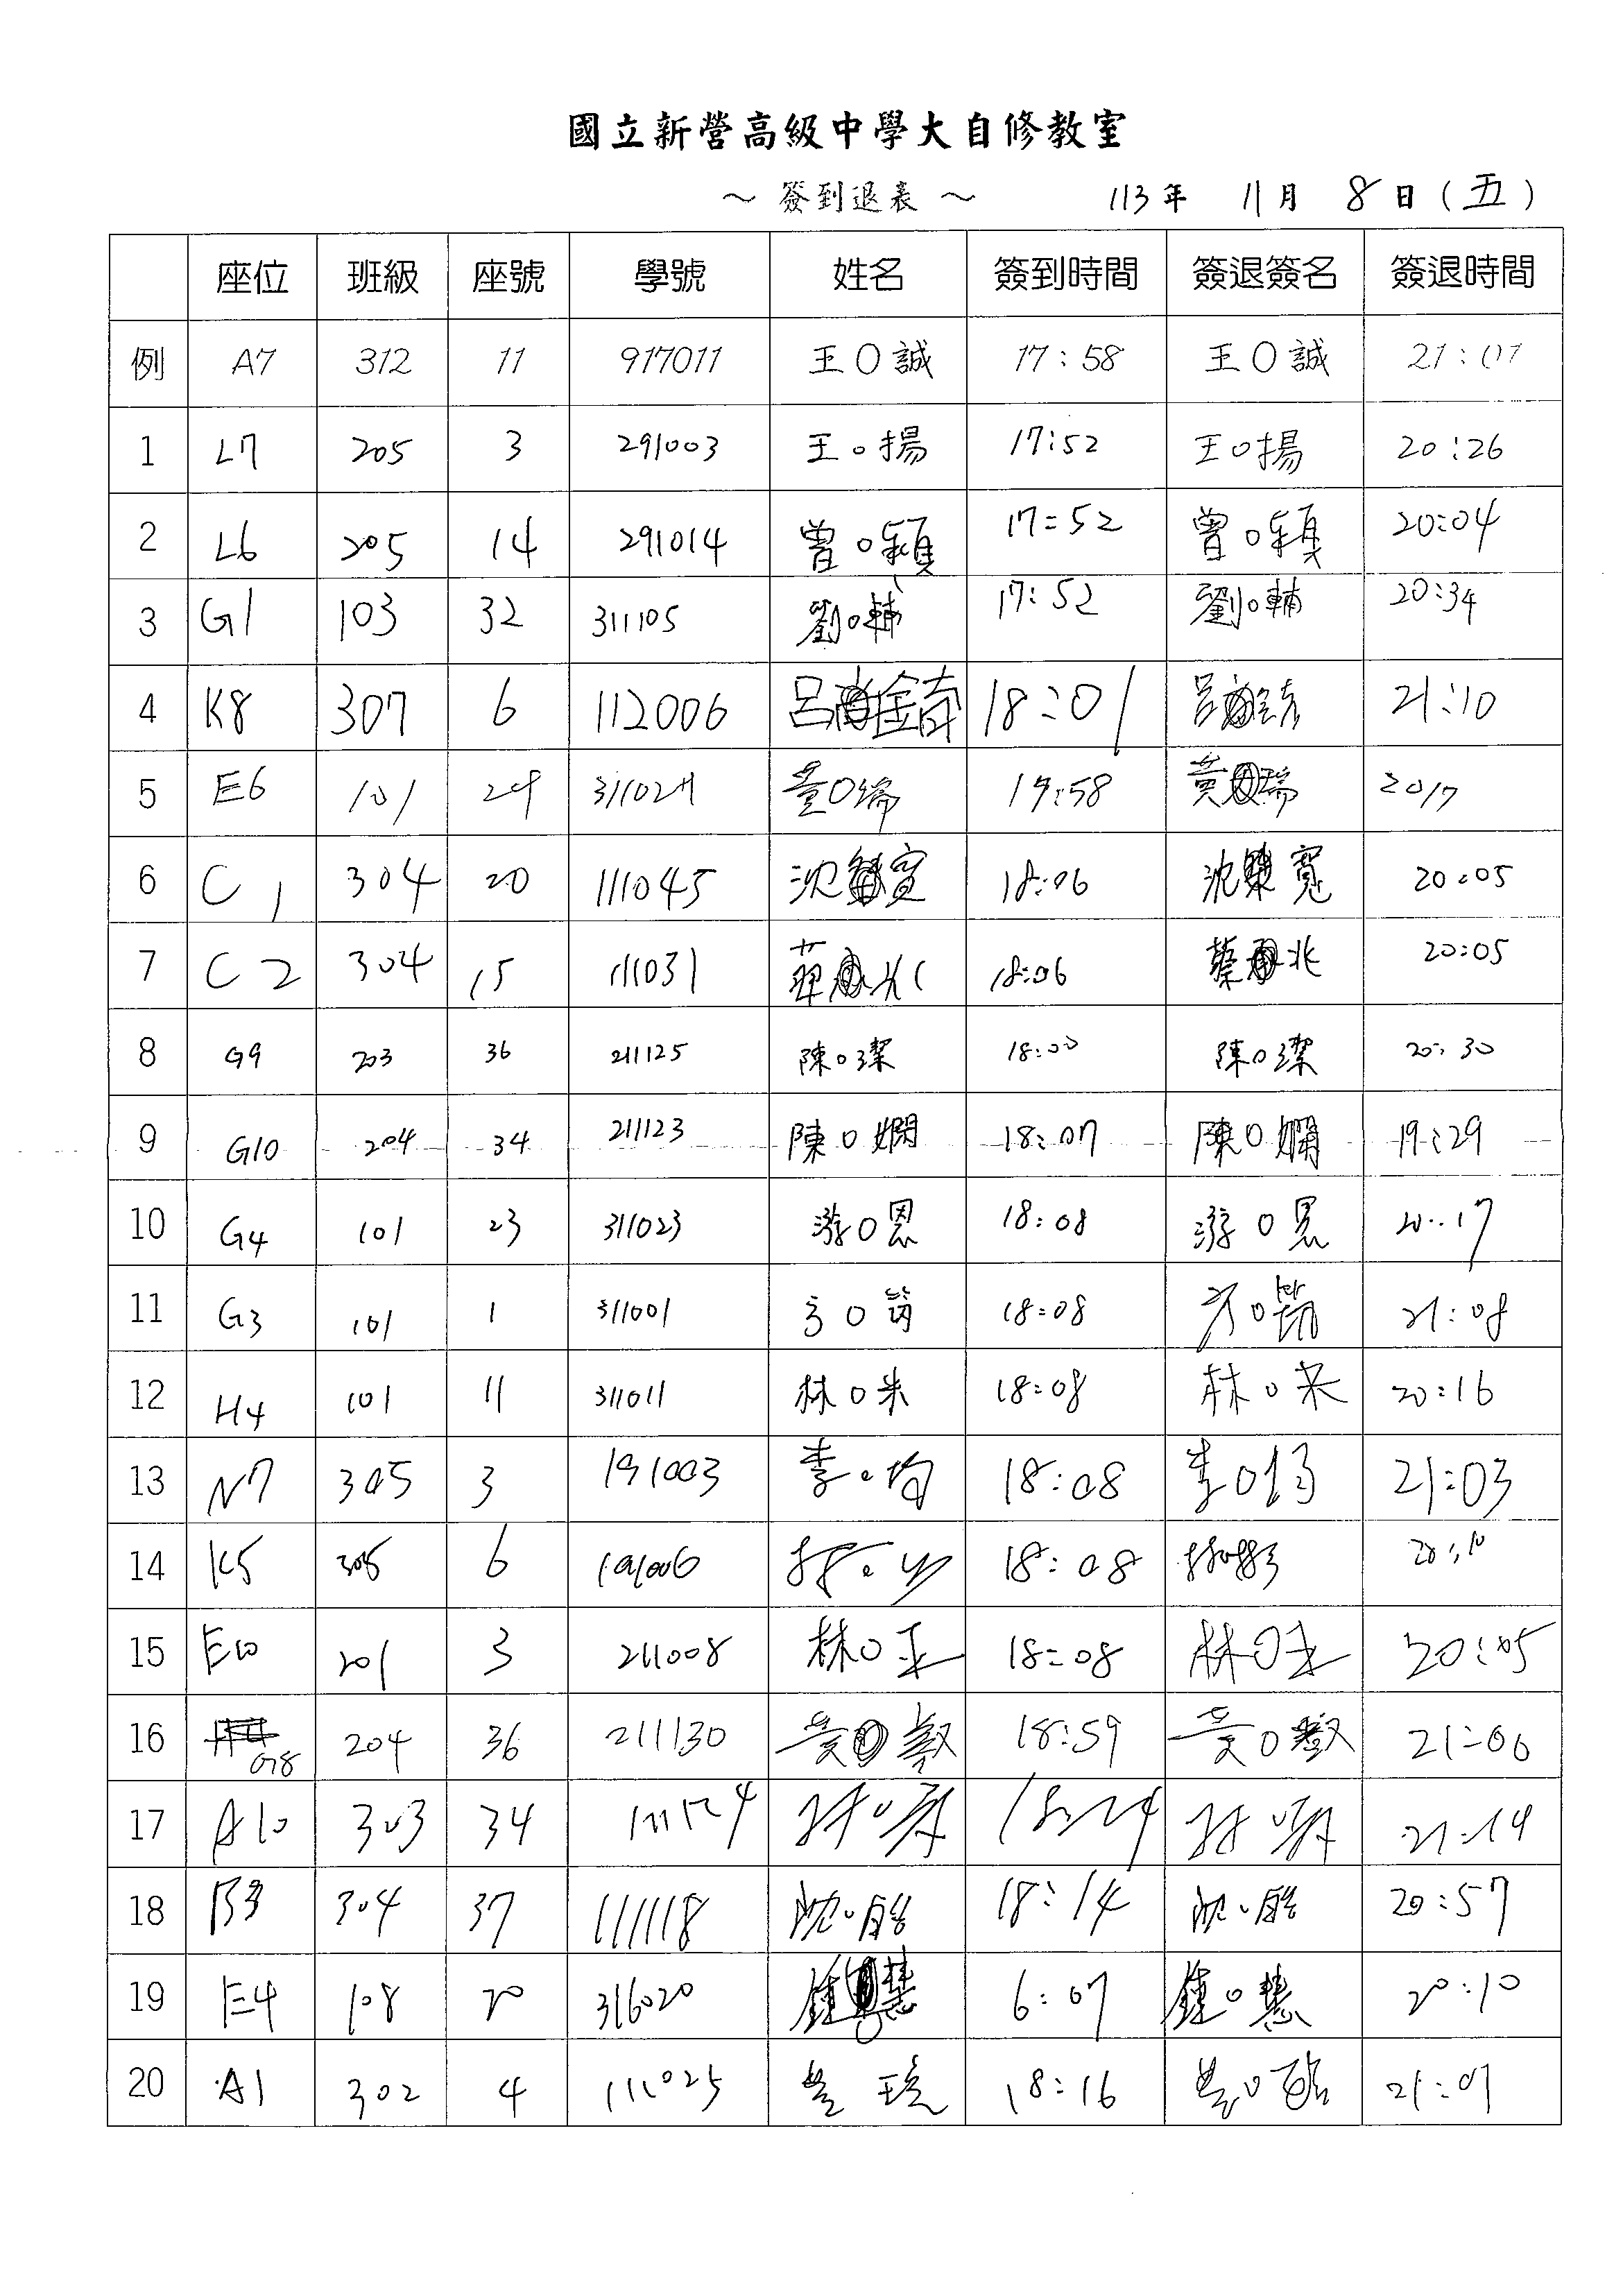 國立新營高級中學大自修教室
～ 簽到退表 ～ 113年 11月 8日(五)
座位 班級 座號 學號 姓名 簽到時間 簽退簽名 簽退時間
例 A7 312 11 917011 王〇誠 17:58 王〇誠 21:01
1 L7 205 3 291003 王〇揚 17:52 王〇揚 20:26
2 L6 205 14 291014 曾〇穎 17:52 曾〇穎 20:04
3 G1 103 32 311105 劉〇輔 17:52 劉〇輔 20:34
4 K8 307 6 112006 呂 錡 18:01 呂 21:10
5 E6 101 29 黃〇瑞 17:58 黃〇瑞 2017
6 C1 304 20 111045 沈 寬 18:06 沈 寬 20:05
7 C2 304 15 111031 18:06 蔡 兆 20:05
8 G9 203 36 211125 陳〇潔 18:00 陳〇潔 20:30
9 G10 204 34 211123 陳〇嫻 18:07 陳〇嫻 19:29
10 G4 101 23 311023 游〇恩 18:08 游〇恩 20:17
11 G3 101 1 311001 方〇筠 18:08 方〇 21:08
12 H4 101 11 311011 林〇米 18:08 林〇米 20:16
13 N7 305 3 191003 李〇均 18:08 李〇 21:03
14 K5 305 6 191006 18:08 20:10
15 E10 201 3 211008 林〇 18:08 林〇 20:05
16 G8 204 36 211130 黃〇 18:59 黃〇 21:06
17 A10 303 34 18:24 21:19
18 B3 304 37 111118 沈〇 18:14 沈〇 20:57
19 E4 108 20 316020 鍾 慧 6:07 鍾〇慧 20:10
20 A1 302 4 111025 18:16 21:01